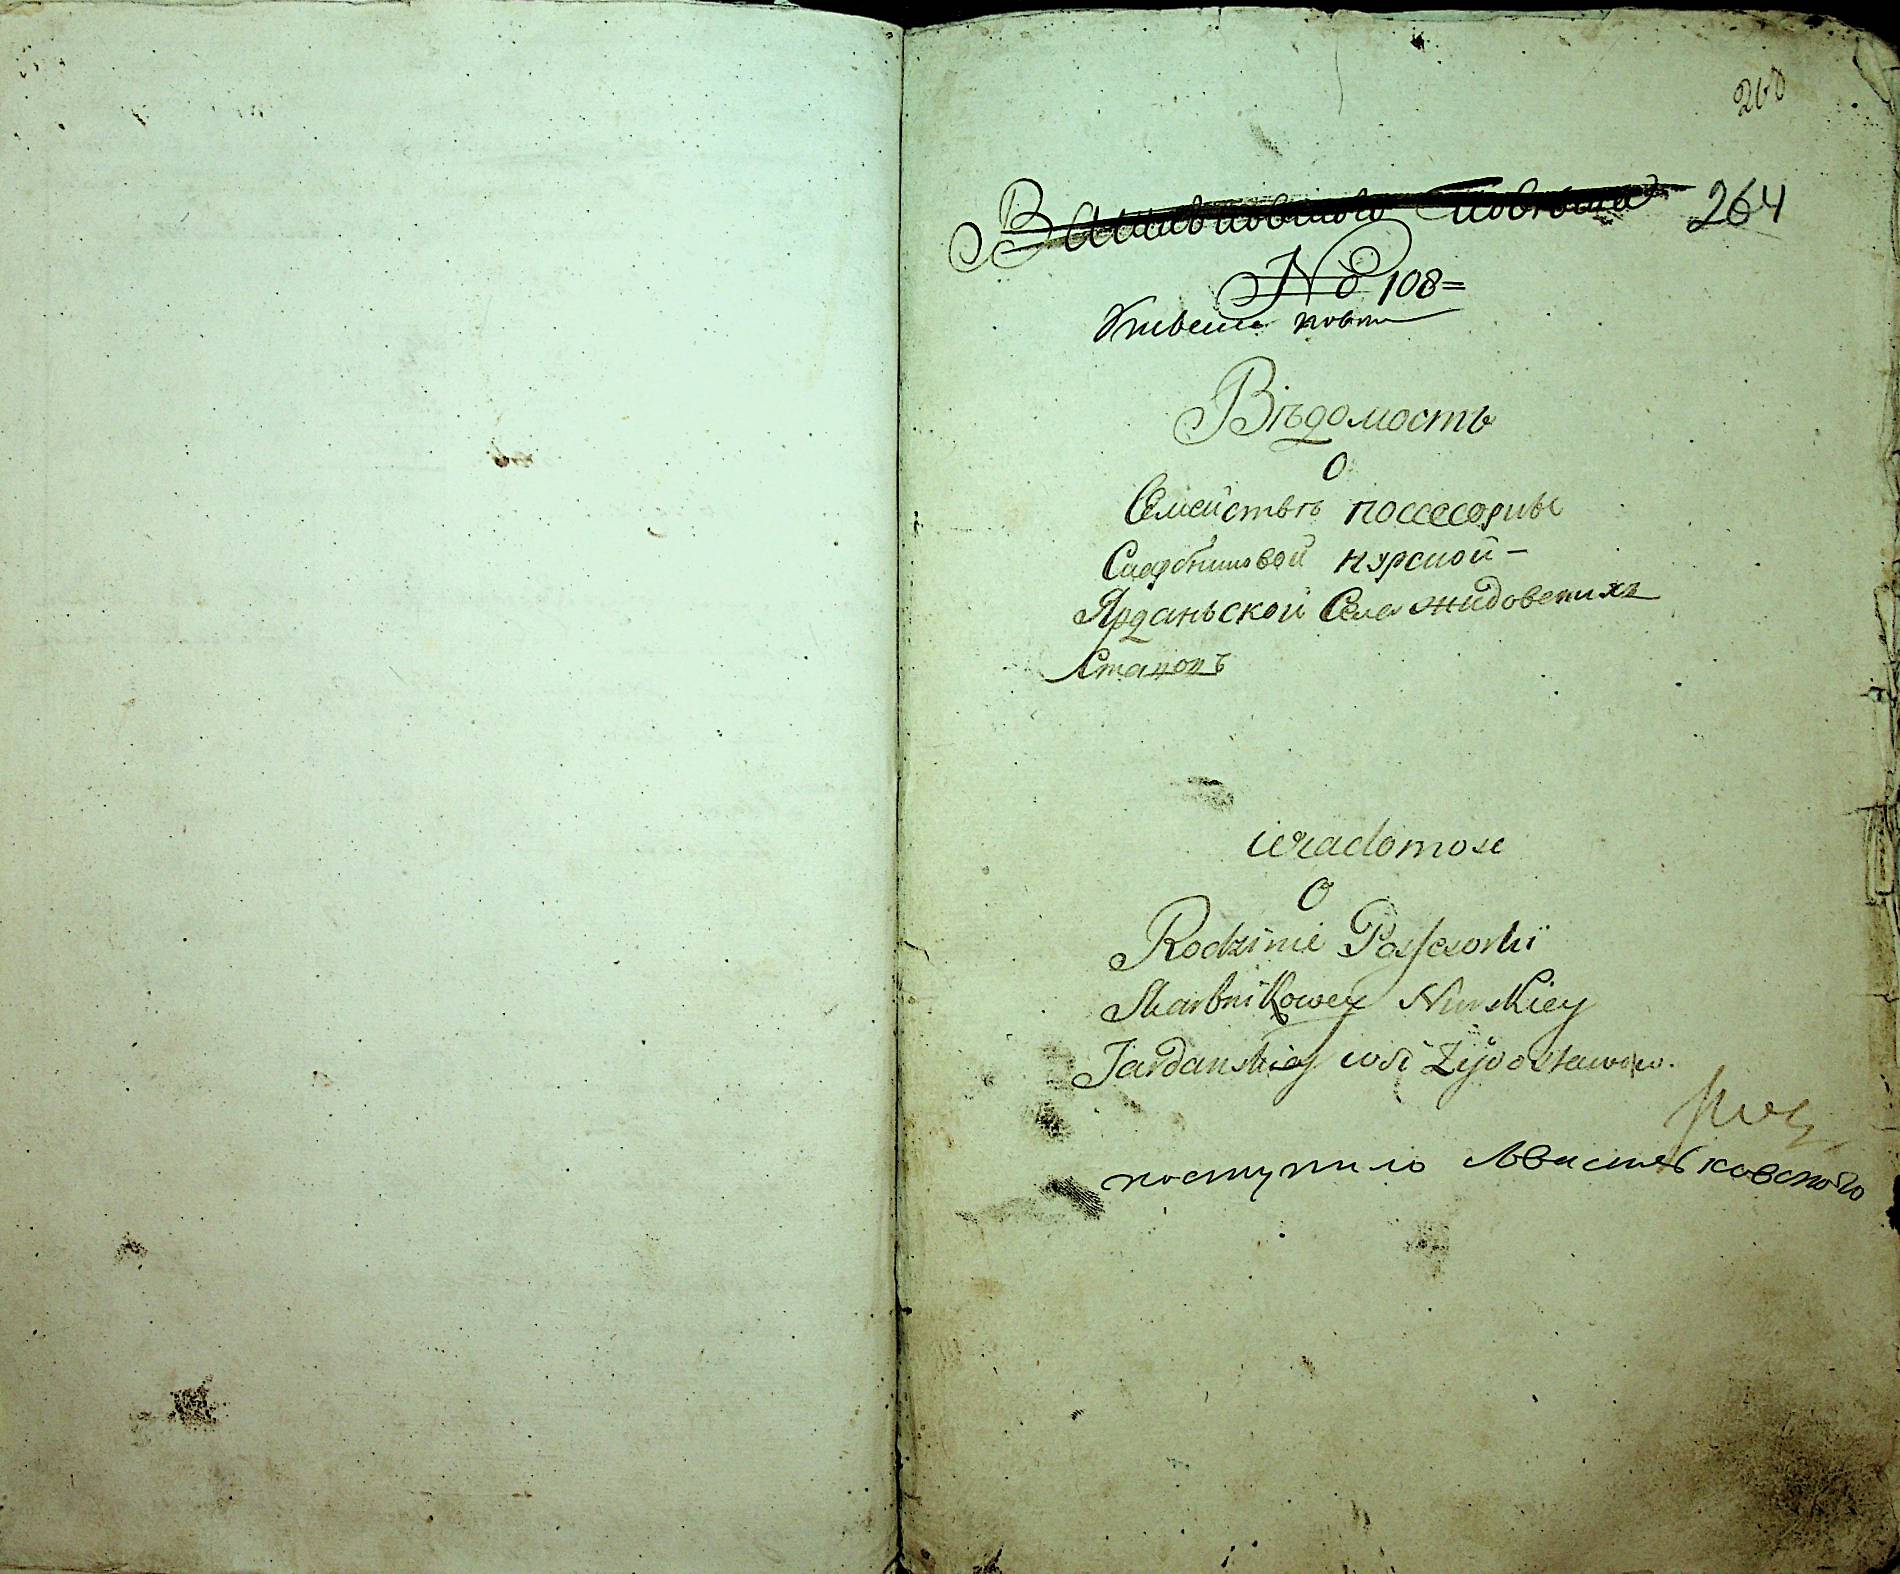 260
Васильковского Повѣта 264
№ 108=
повѣта
Вѣдомость
О
Семействѣ поссесорки
Скарбниковой Нурской –
Ярданьской Села Жидовскихъ
Стапопъ
wiadomosc
O
Rodzinie Possesorki
Skarbnikowey Nurskiey
Jardanskiey wsi Zydostawow.
поступило Авасильковского